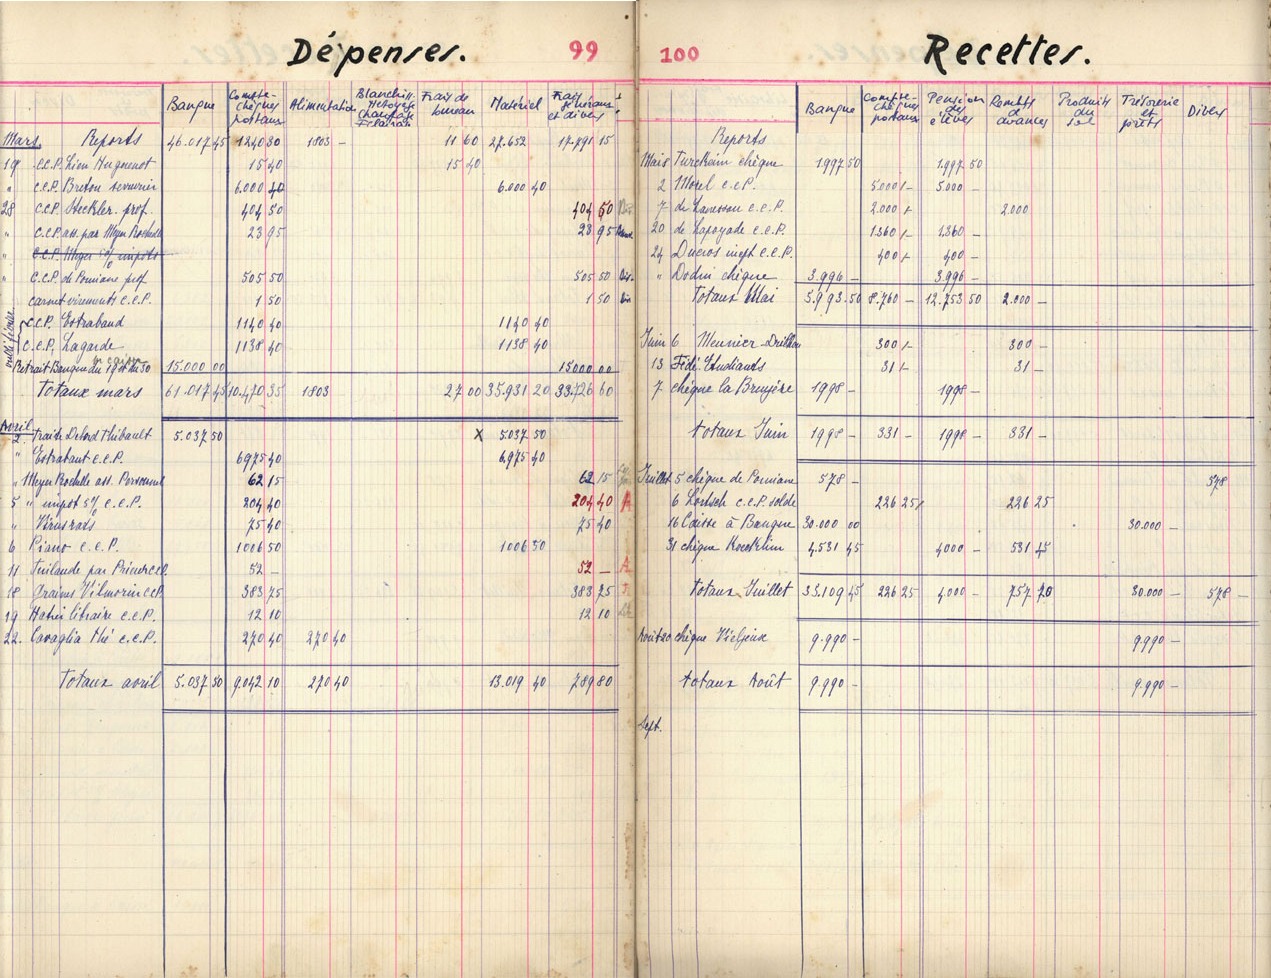 Dépenses. 99
Banque Compte-chèques postaux Alimentation Blanchiss. Nettoyage Chauffage Eclairage Frais de bureau Matériel Frais généraux et divers
Mars. Reports 46.017 45 1240 30 1803 - 11 60 27.652 17.791 15
19 C.C.P. Lien Huguenot 15 40 15 40
" C.C.P. Breton serrurier 6.000 40 6.000 40
28 C.C.P. Steckler. prof. 404 50 404 50
" C.C.P. ass. par Meyer Rochelle 23 95 23 95
" C.C.P. Meyer 5% impôts
" C.C.P. de Pomiane prof 505 50 505 50 Div.
carnet virements C.C.P. 1 50 1 50 Div
C.C.P. Estraband 1140 40 1140 40
C.C.P. Lagarde 1138 40 1138 40
oubli février
Retrait Banque du 19 st au 30 15.000 00 15000 00
Totaux mars 61.017 45 10.470 35 1803 27 00 35.931 20 33.726 60
Avril
2. Traite Delord Thibault 5.037 50 X 5.037 50
" Estrabant C.C.P. 6975 40 6.975 40
" Meyer Rochelle ass. Personnel 62 15 62 15
5 " impôt 5% C.C.P. 204 40 204 40 A
" Virus rats 75 40 75 40
6 Piano C.C.P. 1006 50 1006 50
11 Finlande par Prieur C.C.P. 52 - 52 - A
18 graines Vilmorin C.C.P. 383 75 383 75
19 Hatier libraire C.C.P. 12 10 12 10
22. Cavaglia thé C.C.P. 270 40 270 40
Totaux avril 5.037 50 9.042 10 270 40 13.019 40 789 80
100 Recettes.
Banque Compte-chèques postaux Pension des élèves Rembts d'avances Produits du sol Trésorerie et prêts Divers
Reports
Mai 5 Turckeim chèque 1997 50 1997 50
2 Morel C.C.P. 5000 /- 5000 -
7 de Lanessou C.C.P. 2.000 /- 2.000
20 de Lapoyade C.C.P. 1360 /- 1360 -
24 Ducros inept C.C.P. 400 /- 400 -
" Dodin chèque 3.996 - 3.996 -
Totaux Mai 5.993.50 8.760 - 12.753 50 2.000 -
Juin 6 Meunier-Dreilhon 300 /- 300 -
13 Fédé. Etudiants 31 /- 31 -
7 chèque la Bruyère 1998 - 1998 -
totaux Juin 1998 - 331 - 1998 - 331 -
Juillet 5 chèque de Pomiane 578 - 578
6 Lortsch C.C.P. solde 226 25 / 226 25
16 Caisse à Banque 30.000 00 30.000 -
31 chèque Koechlin 4.531 45 4000 - 531 45
totaux Juillet 35.109 45 226 25 4.000 - 757 70 30.000 - 578 -
Août 20 chèque Vieljeux 9.990 - 9.990 -
totaux Août 9.990 - 9.990 -
Sept.